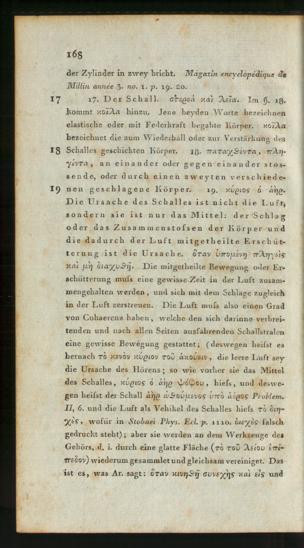 168
der Zylinder in zwey bricht. Magazin encyclopédique de
Millin année 3. no. 1. p. 19. 20.
17 17. Der Schall. στερεὰ καὶ λεῖα. Im §. 18.
kommt κοῖλα hinzu. Jene beyden Worte bezeichnen
elastische oder mit Federkraft begabte Körper. κοῖλα
bezeichnet die zum Wiederhall oder zur Verstärkung des
18 Schalles geschickten Körper. 18. παταχθέντα, πλη-
γέντα, an einander oder gegen einander stos-
sende, oder durch einen zweyten verschiede-
19 nen geschlagene Körper. 19. κύριος ὁ ἀήρ.
Die Ursache des Schalles ist nicht die Luft,
sondern sie ist nur das Mittel: der Schlag
oder das Zusammenstofsen der Körper und
die dadurch der Luft mitgetheilte Erschüt-
terung ist die Ursache. ὅταν ὑπομένῃ πληγεὶς
καὶ μὴ διαχυθῇ. Die mitgetheilte Bewegung oder Er-
schütterung mufs eine gewisse Zeit in der Luft zusam-
mengehalten werden, und sich mit dem Schlage zugleich
in der Luft zerstreuen. Die Luft mufs also einen Grad
von Cohaerenz haben, welche den sich darinne verbrei-
tenden und nach allen Seiten ausfahrenden Schallstralen
eine gewisse Bewegung gestattet; (deswegen heifst es
hernach τὸ κενὸν κύριον τοῦ ἀκούειν, die leere Luft sey
die Ursache des Hörens; so wie vorher sie das Mittel
des Schalles, κύριος ὁ ἀὴρ ψόφου, hiefs, und deswe-
gen heifst der Schall ἀὴρ ὠθούμενος ὑπὸ ἀέρος Problem.
II, 6. und die Luft als Vehikel des Schalles hiefs τὸ διη-
χὲς, wofür in Stobaei Phys. Ecl. p. 1110. διεχὲς falsch
gedruckt steht); aber sie werden an dem Werkzeuge des
Gehörs, d. i. durch eine glatte Fläche (τὸ τοῦ λείου ἐπί-
πεδον) wiederum gesammlet und gleichsam vereiniget. Das
ist es, was Ar. sagt: ὅταν κινηθῇ συνεχὴς καὶ εἷς und